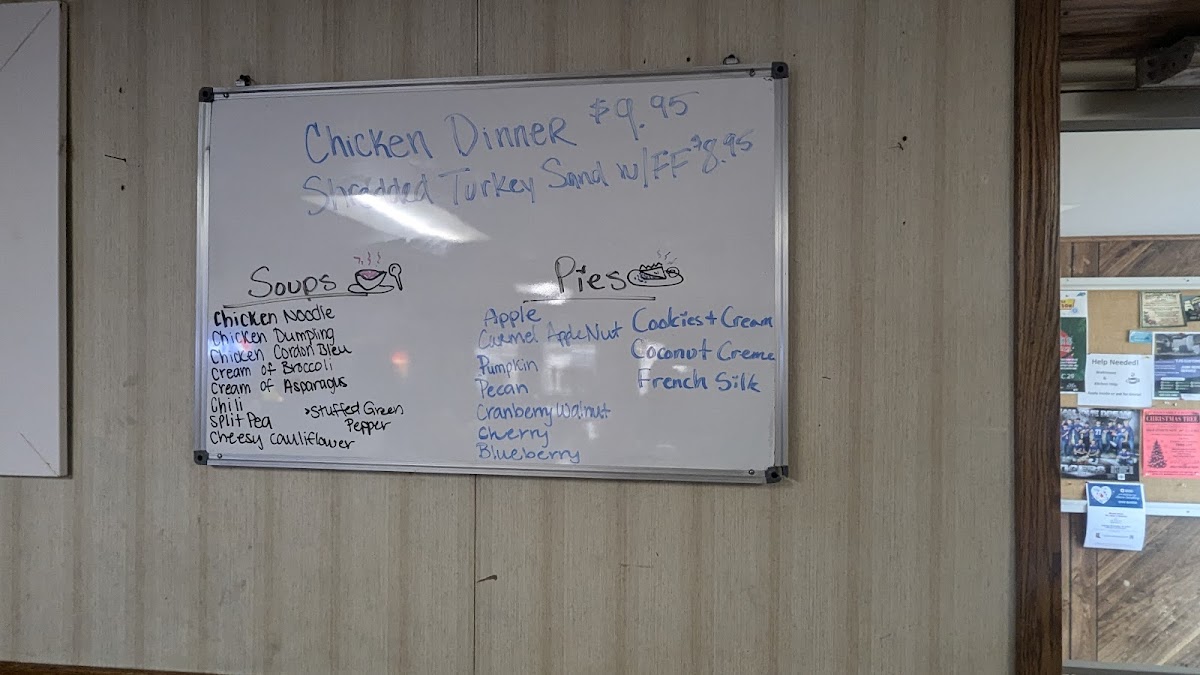 Chicken Dinner $9.95
Shredded Turkey Sand w/FF $8.95
Soups
Chicken Noodle
Chicken Dumpling
Chicken Cordon Bleu
Cream of Broccoli
Cream of Asparagus
Chili
Split Pea
Cheesy Cauliflower
Stuffed Green
Pepper
Pies
Apple
Carmel Apple Nut
Pumpkin
Pecan
Cranberry Walnut
Cherry
Blueberry
Cookies + Cream
Coconut Creme
French Silk
Help Needed!
CHRISTMAS TREE